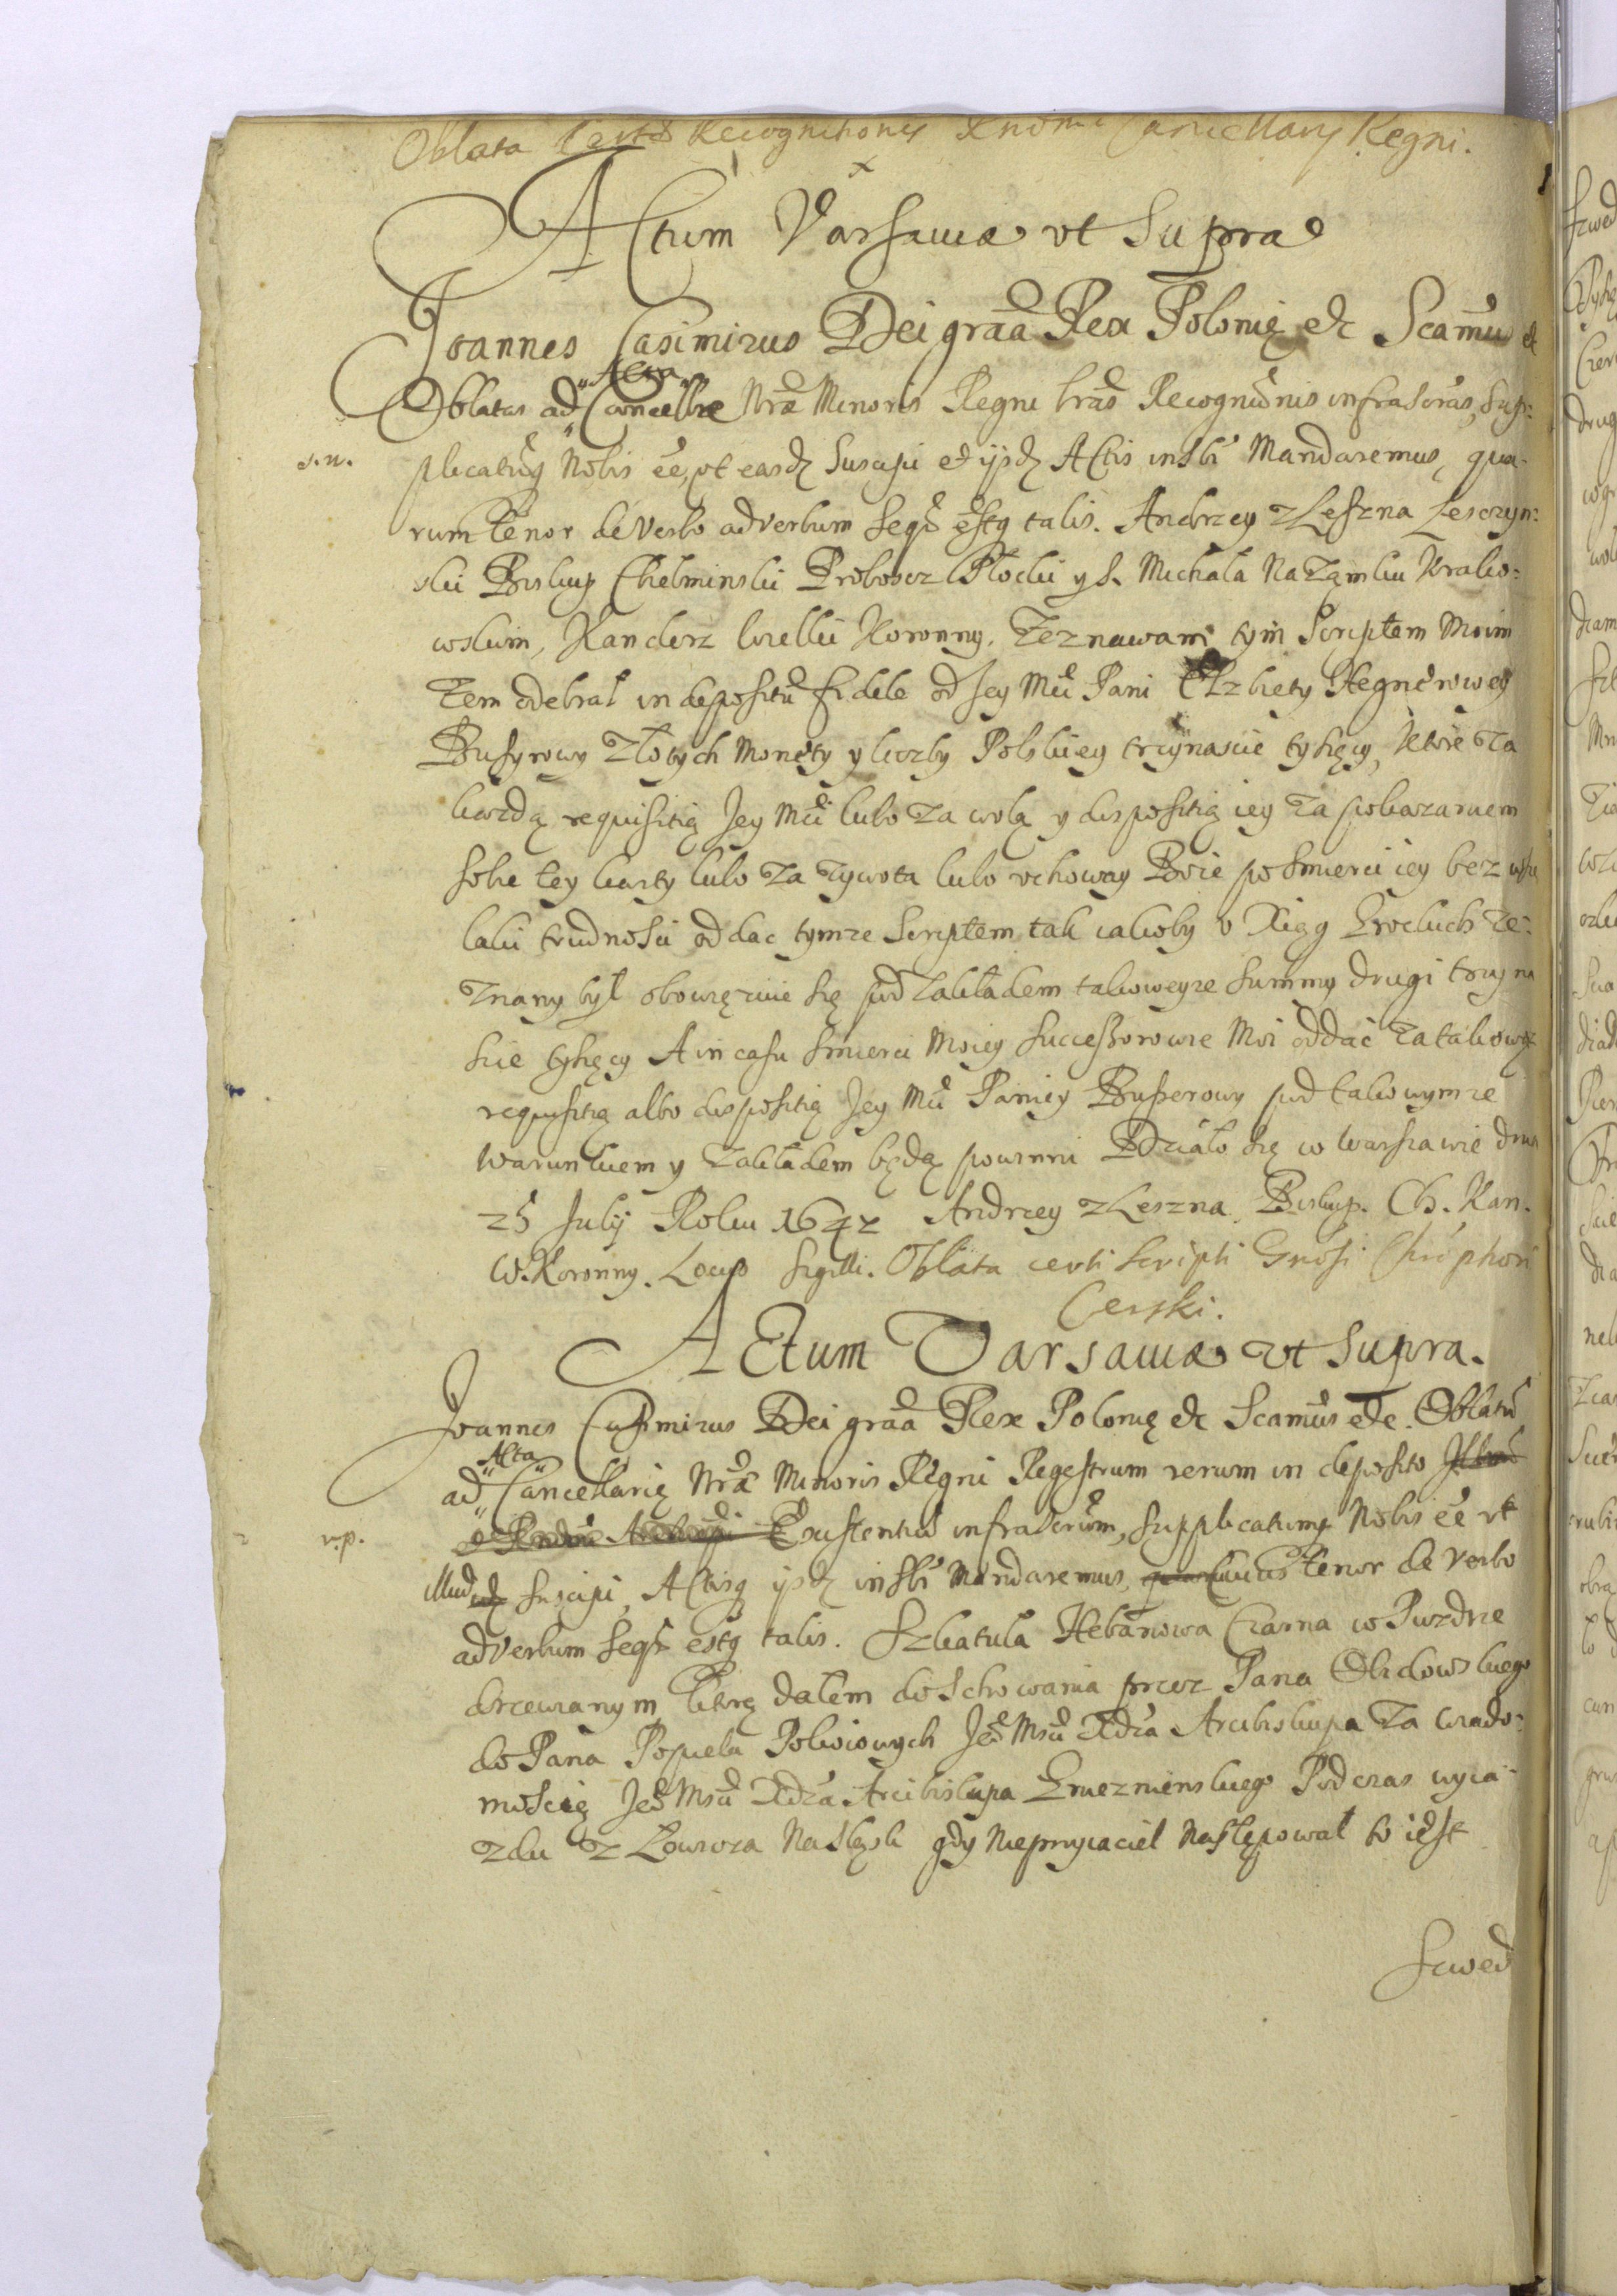 Oblata Recognitionis Cancellarij Regni.
Actum Varsauiæ vt Supra
Joannes Casimirus Dei graã Rex Polonię etc Scamũ et
Acta
Oblatas ad Cancellræ Nrã Minoris Regni Lrãs Recognũnis infrascrãs, Sup:
s.n.
plicatũq Nobis ẽe, vt easdz Suscipi et ijsdz Actis inSbi Mandaremus, qua-
rum tenor de Verbo ad verbum seqr estq talis. Andrzey z Leszna Lesczyn:
ski Biskup Chelminski Proboscz Plocki y S. Michała Na Zamku Krako:
wskim, Kanclerz Wielki Koronny. Zeznawam tym Scriptem Moim
Zem odebrał in depositũ fidele od Jey Mći Pani Elzbiety Hegnerowey
Busyrowy Złotych Monety y liczby Polskiey trzynascie tysięcy, Ktore Za
kazdą requisitią Jey Mći lubo Za wolą y dispositią iey Za pokazaniem
sobie tey karty lubo Za Zywota lubo vchoway Boze po smierci iey bez wsze
laki trudnosci oddac tymze Scriptem tak iakoby v Xiąg Grockich Ze:
Znany był obowięzuie się pod Zakładem takoweyze Summy drugi trzyna
scie tysięcy A in casu smierci Moiey Successorowie Moi oddać Za takową
requisitią albo dispositią Jey Mći Paniey Buszerowy pod takowymze
Warunkiem y Zakładem będą powinni Działo się w Warszawie dnia
25 July Roku 1642 Andrzey z Leszna Biskup. Ch. Kan.
W. Koronny. Locus Sigilli. Oblata certi scripti Gnosi Chrõphori
Cerski.
Actum Varsauiæ vt Supra.
Joannes Casimirus Dei graã Rex Polonię etc Scamũs etc. Oblatũ
Acta
ad Cancellarię Nrã Minoris Regni Regestrum rerum in deposito
v.p.
Existentiũ infrascrũm, supplicatumq Nobis ẽe vt
illud suscipi, Actisq ijsdz inSbi Mandaremus, cuius tenor de Verbo
ad Verbum seqr estq talis. Szkatuła Hebanowa Czarna w Puzdrze
drzewianym Ktorę dałem do Schowania przez Pana
do Pana Popiela Pokoiowych Jeo Mści Xdza Arcibiskupa Za wiado:
moscią Jeo Mści Xdza Arcibiskupa Gnieznienskiego Pod czas wyia-
zdu z Łowicza Na Sląsk gdy Nieprzyiaciel Następował to iest
Szwed